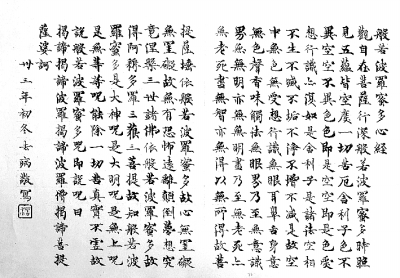 般若波羅蜜多心經
觀自在菩薩行深般若波羅蜜多時照
見五蘊皆空度一切苦厄舍利子色不
異空空不異色色即是空空即是色受
想行識亦復如是舍利子是諸法空相
不生不滅不垢不淨不增不減是故空
中無色無受想行識無眼耳鼻舌身意
無色聲香味觸法無眼界乃至無意識
界無無明亦無無明盡乃至無老死亦
無老死盡無智亦無得以無所得故菩
提薩埵依般若波羅蜜多故心無罣礙
無罣礙故無有恐怖遠離顛倒夢想究
竟涅槃三世諸佛依般若波羅蜜多故
得阿耨多羅三藐三菩提故知般若波
羅蜜多是大神呪是大明呪是無上呪
是無等等呪能除一切苦真實不虛故
說般若波羅蜜多呪即說呪曰
揭諦揭諦波羅揭諦波羅僧揭諦菩提
薩婆訶
卅三年初冬去病敬寫